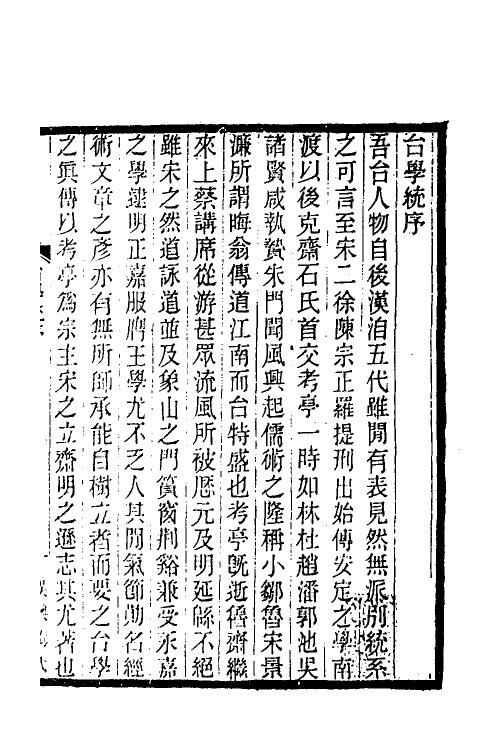 台學統序
吾台人物自後漢洎五代雖閒有表見然無派別統系
之可言至宋二徐陳宗正羅提刑出始傳安定之學南
渡以後克齋石氏首交考亭一時如林杜趙潘郭池吳
諸賢咸執贄朱門聞風興起儒術之隆稱小鄒魯宋景
濂所謂晦翁傳道江南而台特盛也考亭旣逝魯齋繼
來上蔡講席從游甚眾流風所被歷元及明延緜不絕
雖宋之然道詠道並及象山之門篔窗荆谿兼受永嘉
之學逮明正嘉服膺王學尤不乏人其閒氣節勛名經
術文章之彥亦有無所師承能自樹立者而要之台學
之眞傳以考亭爲宗主宋之立齋明之遜志其尤著也